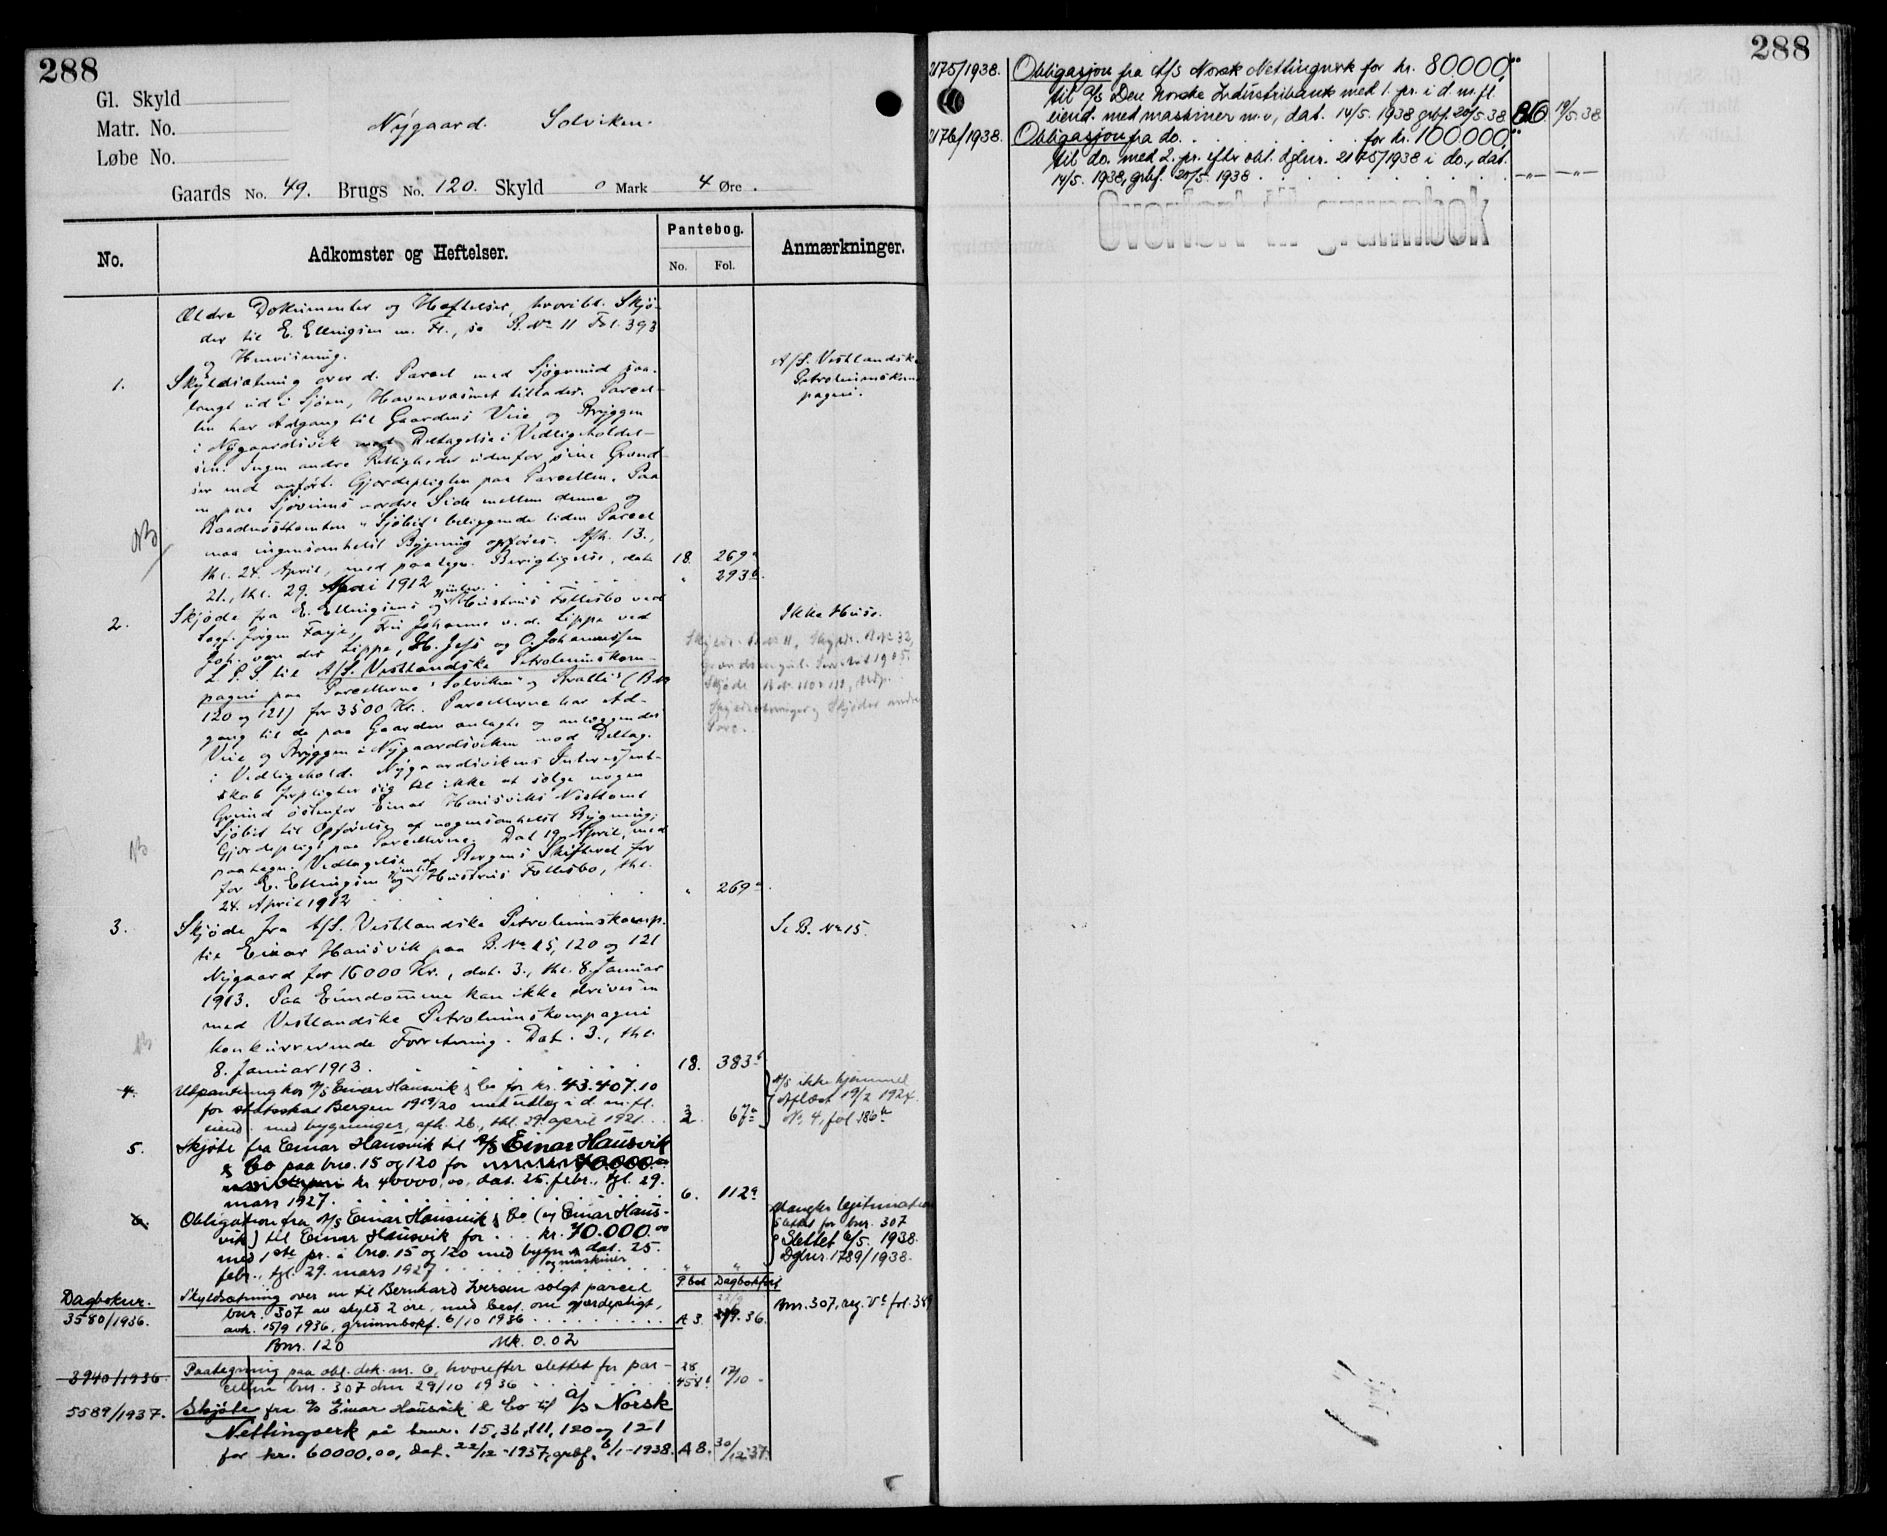 288
Gl. Skyld
Matr. No.
Løbe No.
Nygaard. Solviken.
Gaards No. 49. Brugs No. 120. Skyld 0 Mark 4 Øre.
No. Adkomster og Heftelser. Pantebog. No. Fol. Anmærkninger.
Ældre Dokumenter og Heftelser, hvoribl. Skjø-
der til E. Ellingsen m. Fl., se B. No 11 Fol. 393
og Henvisning.
1. Skyldsætning over d. Parcel med Sjøgrund saa-
langt ud i Sjøen, Havnevæsenet tillader. Parcel-
len har Adgang til Gaardens Veie og Bryggen
i Nygaardsvik med Deltagelse i Vedligeholdel-
sen. Ingen andre Rettigheder udenfor sine Grænd-
ser end anført. Gjærdepligten paa Parcellen. Paa
en paa Sjøveiens nordre Side mellem denne og
"Sjøbit" beliggende liden Parcel
NB maa ingensomhelst Bygning opføres. Afh. 13.,
thl. 24. April, med paategn. Berigtigelse, dat. 18. 269a
21., thl. 29. 1912 " 293b.
A/S. Vestlandske
Petroleumskom-
pagni.
2. Skjøde fra E. Ellingsens og Hustrus Fællesbo ved
Sagf. Jørgen Faye, Fru Johanne v. d. Lippe ved
Joh. von der Lippe, H. Jess og O. Johannessen
L. P. S. til A/S. Vestlandske Petroleumskom-
pagni paa Parcellerne "Solviken" og (B. No
120 og 121) for 3500 Kr. Parcellerne har Ad-
gang til de paa Gaarden anlagte og anlæggendes
Veie og Bryggen i Nygaardsviken mod Deltag.
i Vedligehold. Nygaardsvikens Interessent-
skab forpligter sig til ikke at sælge nogen
Grund østenfor Einar Hausviks Nosttomt
Sjøbit til Opførelse af nogensomhelst Bygning;
NB Gjærdepligt paa Parcellerne. Dat 19 April, med
paategn. Vedtagelse af Bergens Skifteret for
for E. Ellingsen og Hustrus Fællesbo, thl.
24. April 1912 " 269a.
Ikke Huse.
3. Skjøde fra A/S. Vestlandske Petroleumskomp.
til Einar Hausvik paa B. No 15, 120 og 121
Nygaard for 16000 Kr., dat. 3., thl. 8. Januar
1913. Paa Eiendommene kan ikke drives en
med Vestlandske Petroleumskompagni
NB konkurrerende Forretning. Dat. 3., thl.
8. Januar 1913. 18. 383b
Se B. No 15.
4. Utpantning hos A/S Einar Hausvik & Co for kr. 43.407.10
for statsskat Bergen 1919/20 med utlæg i d. m. fl.
eiend. med bygninger, afh. 26., thl. 29. april 1921. 2. 67a
A/S ikke hjemmel
Aflæst 19/2 1924.
No. 4, fol. 186a
5. Skjøte fra Einar Hausvik til A/S Einar Hausvik
& Co paa bno. 15 og 120 for
kr 40000,00, dat. 25. febr., tgl. 29.
mars 1927. 6. 112a
6. Obligation fra A/S Einar Hausvik & Co (og Einar Haus-
vik) til Einar Hausvik for ... kr. 70.000.00
med 1ste pr. i bno. 15 og 120 med bygn. og maskiner dat. 25.
febr., tgl. 29. mars 1927 " "
Mangler legitimation
Slettet for bnr. 307
Slettet 6/5. 1938.
Dgbnr. 1789/1938.
P. bok Dagbokført
Dagboknr. 3580/1936. Skyldsætning over en til Bernhard Iversen solgt parcell
bnr. 307 av skyld 2 øre, med best. om gjerdeplikt,
avh. 15/9 1936, grunnbokf. 6/10 1936 A 3. 22/9 36.
Bnr. 307, reg. V fol. 389
Bnr. 120 Mk. 0.02
3940/1936 Paategning paa obl. dok. nr. 6, hvorefter slettet for par-
cellen bnr. 307 den 29/10 1936 28 458b 17/10 -
5589/1937. Skjøte fra A/S Einar Hausvik & Co til A/S Norsk
Nettingverk på bnr. 15, 36, 111, 120 og 121
for kr. 60000,00, dat. 22/12-1937, grbf. 6/1-1938. A 8. 30/12-37.
288
2175/1938. Obligasjon fra A/S Norsk Nettingverk for kr. 80000,00
til A/S Den Norske Industribank med 1. pr. i d. m. fl.
eiend. med maskiner m.v, dat. 14/5. 1938 grbf. 20/5.38 B6 19/5.38
2176/1938. Obligasjon fra do. for kr. 100000,00
til do. med 2. pr. efter obl. dgbnr. 2175/1938 i do., dat.
14/5. 1938, grbf. 20/5. 1938 -"- -"-
Overført til grunnbok